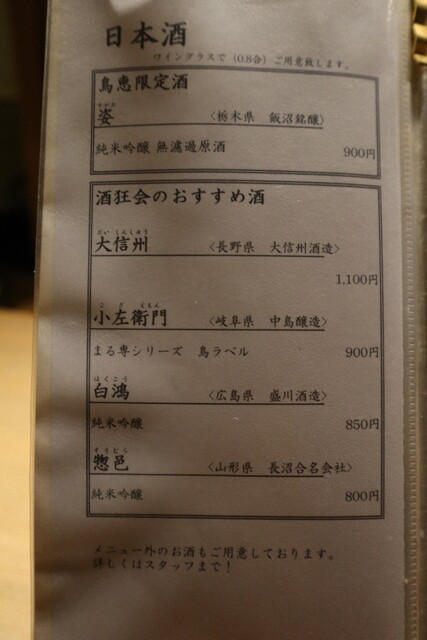 日本酒
ワイングラスで（0.8合）ご用意致します。
鳥恵限定酒
すがた
姿 〈栃木県 飯沼銘醸〉
純米吟醸 無濾過原酒 900円
酒狂会のおすすめ酒
だいしんしゅう
大信州 〈長野県 大信州酒造〉
1,100円
こざえもん
小左衛門 〈岐阜県 中島醸造〉
まる専シリーズ 鳥ラベル 900円
はくこう
白鴻 〈広島県 盛川酒造〉
純米吟醸 850円
そうむら
惣邑 〈山形県 長沼合名会社〉
純米吟醸 800円
メニュー外のお酒もご用意しております。
詳しくはスタッフまで！